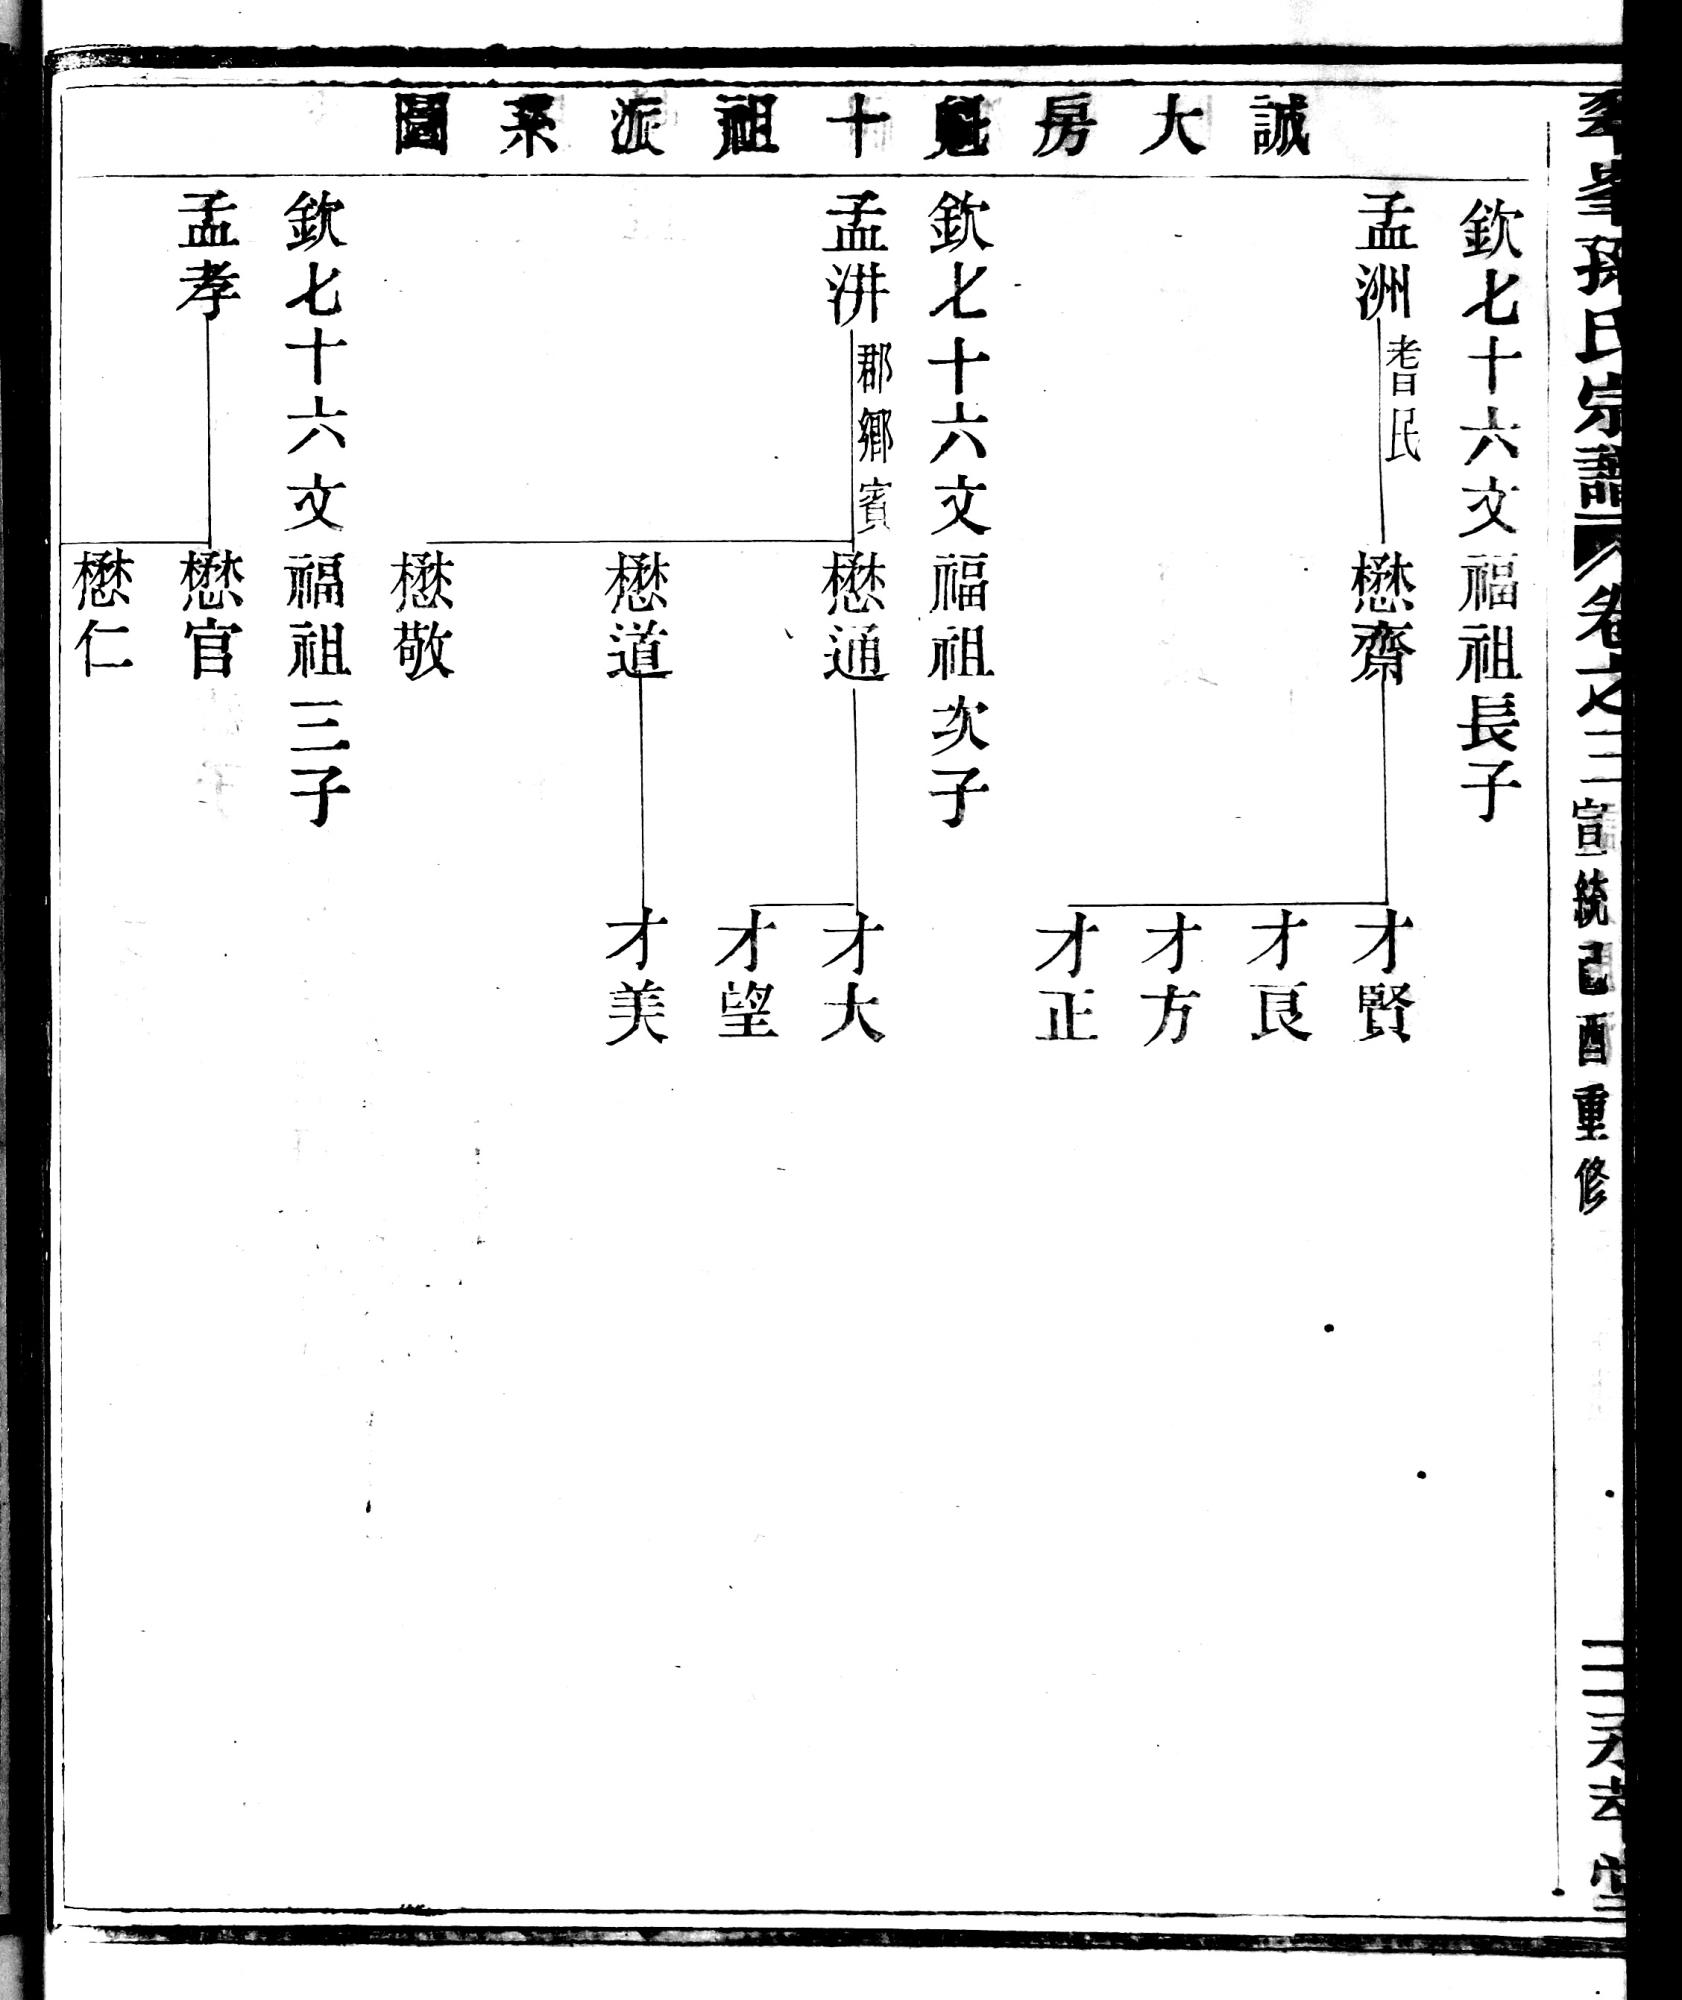 峯孫氏宗譜 卷之三 宣統己酉重修
堂
誠大房魁十祖派系圖
欽七十六文福祖長子
孟洲 耆民 懋齋 才賢
才良
才方
才正
欽七十六文福祖次子
孟汫 郡鄉賓 懋通 才大
才望
懋道 才美
懋敬
欽七十六文福祖三子
孟孝 懋官
懋仁